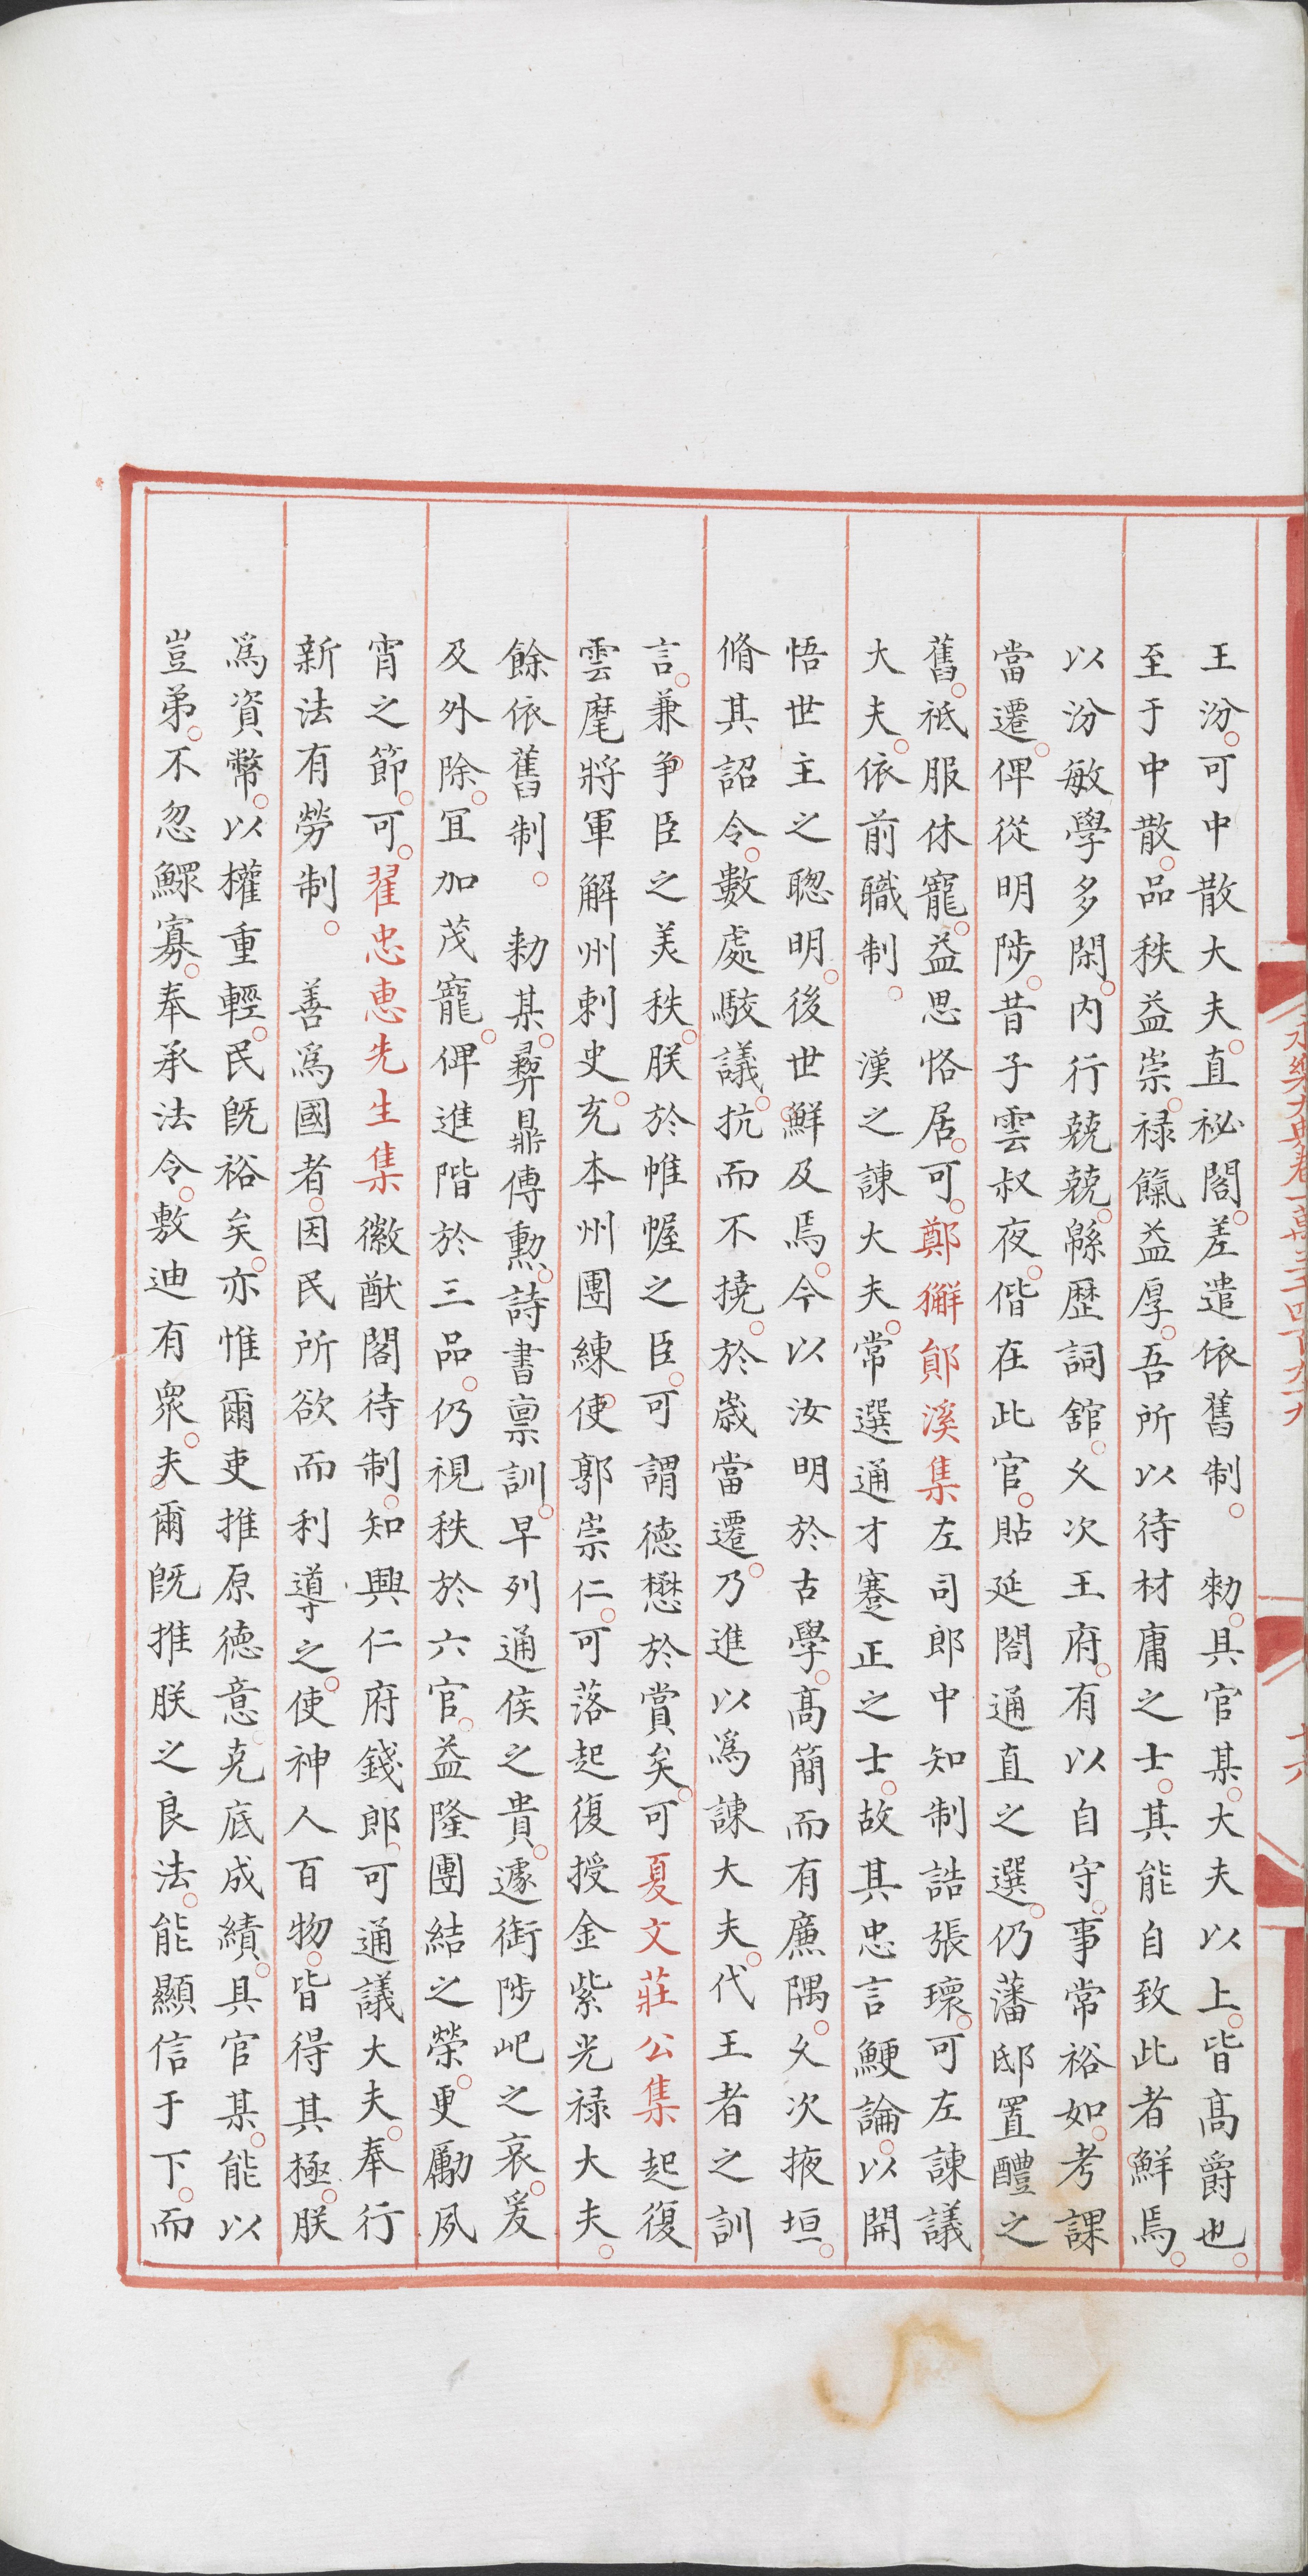 永樂大典卷一萬三千四百九十九
十六
王汾可中散大夫直祕閣差遣依舊制　勑具官某大夫以上皆髙爵也
至于中散品秩益崇禄餼益厚吾所以待材庸之士其能自致此者鮮焉
以汾敏學多閑内行兢兢緜歴詞舘久次王府有以自守事常裕如考課
當遷俾從明陟昔子雲叔夜偕在此官貼延閣通直之選仍藩邸置醴之
舊祗服休寵益思恪居可鄭獬鄖溪集左司郎中知制誥張瓌可左諫議
大夫依前職制　漢之諫大夫常選通才蹇正之士故其忠言鯁論以開
悟世主之聦明後世鮮及焉今以汝明於古學髙簡而有廉隅久次掖垣
脩其詔令數處駮議抗而不撓於歲當遷乃進以爲諫大夫代王者之訓
言兼争臣之美秩朕於帷幄之臣可謂德懋於賞矣可夏文莊公集起復
雲麾將軍解州刺史充本州團練使郭崇仁可落起復授金紫光禄大夫
餘依舊制　勑某彛鼎傳勲詩書禀訓早列通侯之貴遽銜陟屺之哀爰
及外除冝加茂寵俾進階於三品仍視秩於六官益隆團結之榮更勵夙
宵之節可翟忠惠先生集徽猷閣待制知興仁府錢郎可通議大夫奉行
新法有勞制　善爲國者因民所欲而利導之使神人百物皆得其極朕
爲資幣以權重輕民旣裕矣亦惟爾吏推原德意克底成績具官某能以
豈弟不忽鰥寡奉承法令敷迪有衆夫爾旣推朕之良法能顯信于下而